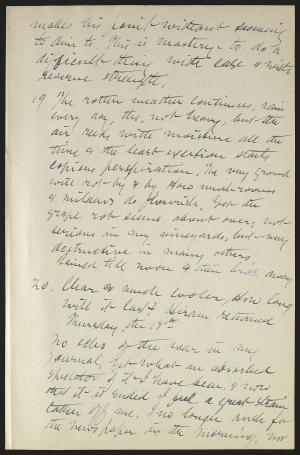 makes his point without seeming
to aim to. This is mastery - to do a
difficult thing with ease & with
reserve strength.
19 The rotten weather continues, rain
every day, tho. not heavy, but the
air reeks with moisture all the
time & the least exertion starts
copious perspiration. The very ground
will rot by & by. How mushrooms
& mildews do flourish. Yet the
grape rot seems about over; not
serious in my vineyards, but very
destructive in many others,
Rained till noon & then broke away
20. Clear & much cooler, How long
will it last, Hiram returned
Thursday, the 18th
No echo of the war in my
Journal, yet what an absorbed
spectator of it I have been, & now
that it is ended I feel a great strain
taken off me. I no longer rush for
the newspaper in the morning, nor